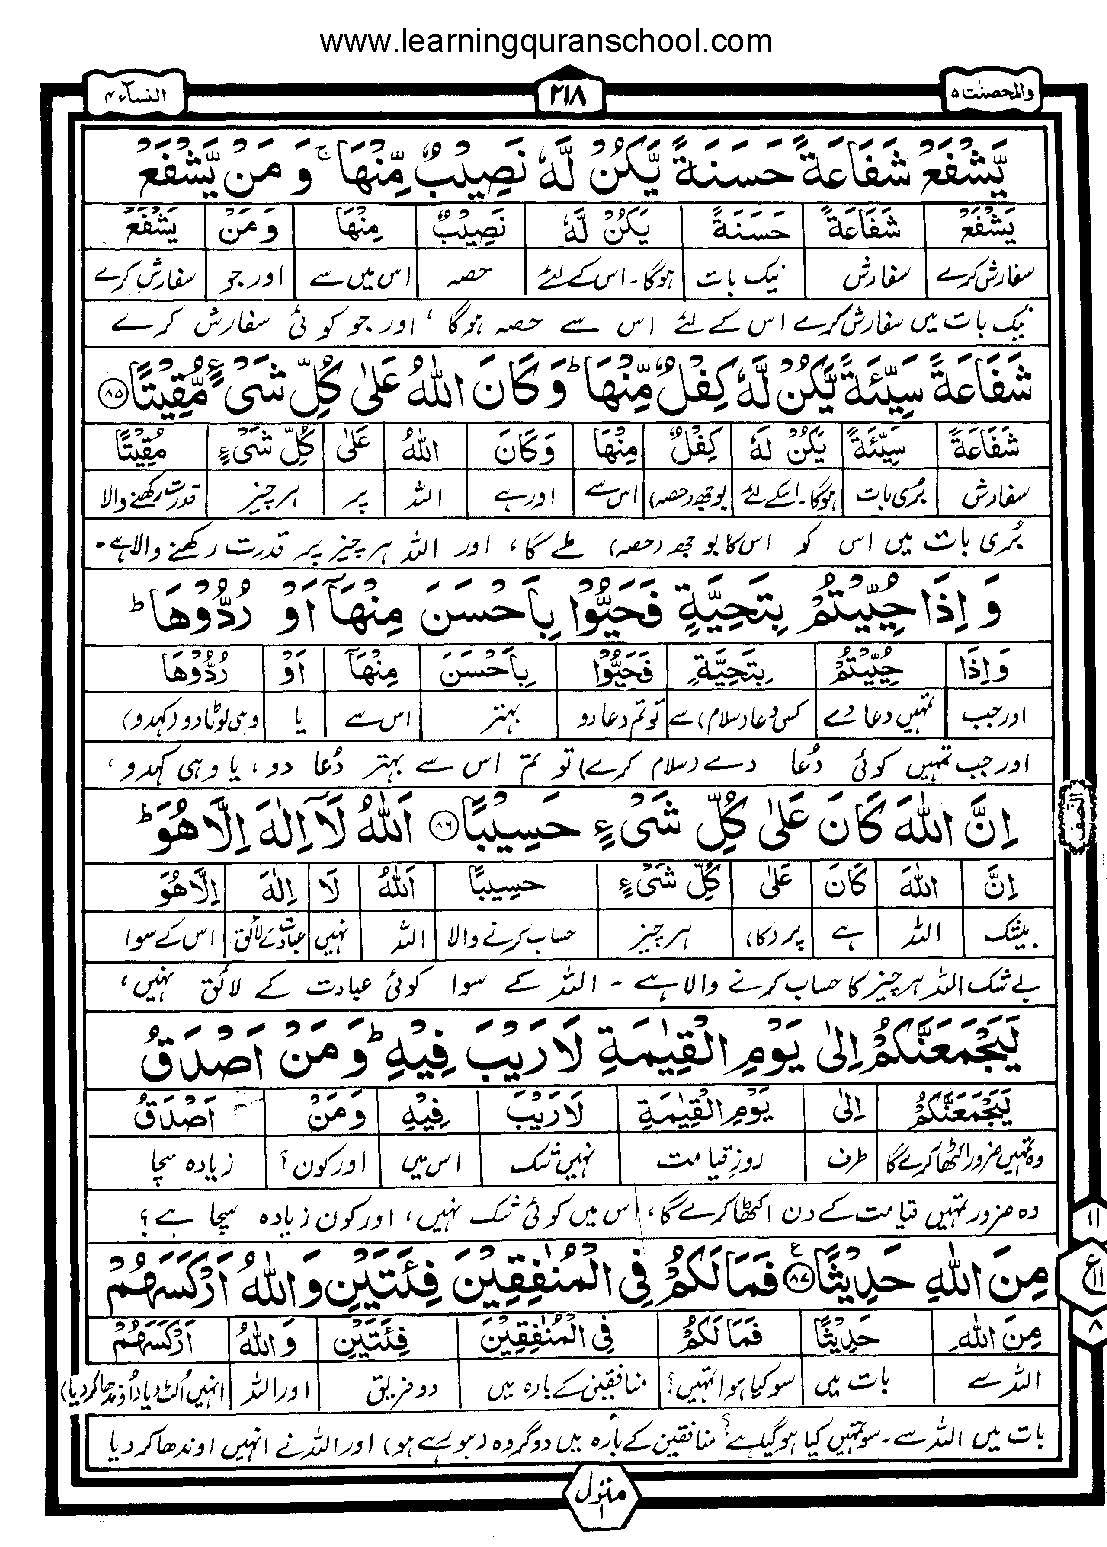 www.learningquranschool.com
والمحصنت ۵ ۲۱۸ النسآء ۴
يَّشْفَعْ شَفَاعَةً حَسَنَةً يَّكُنْ لَّهٗ نَصِيْبٌ مِّنْهَا ۚ وَ مَنْ يَّشْفَعْ
يَشْفَعْ شَفَاعَةً حَسَنَةً يَكُنْ لَّهٗ نَصِيْبٌ مِنْهَا وَمَنْ يَشْفَعْ
سفارش کرے سفارش نیک بات ہوگا۔ اس کے لئے حصہ اس میں سے اور جو سفارش کرے
نیک بات میں سفارش کرے اس کے لئے اس سے حصہ ہوگا ، اور جو کوئی سفارش کرے
شَفَاعَةً سَيِّئَةً يَّكُنْ لَّهٗ كِفْلٌ مِّنْهَا ؕ وَ كَانَ اللّٰهُ عَلٰى كُلِّ شَىْءٍ مُّقِيْتًا ۸۵
شَفَاعَةً سَيِّئَةً يَكُنْ لَّهٗ كِفْلٌ مِنْهَا وَكَانَ اللّٰهُ عَلٰى كُلِّ شَىْءٍ مُقِيْتًا
سفارش بُری بات ہوگا۔ اسکے لئے بوجھ (حصہ) اس سے اور ہے اللہ پر ہر چیز قدرت رکھنے والا
بُری بات میں اس کو اس کا بوجھ (حصہ) ملے گا، اور اللہ ہر چیز پر قدرت رکھنے والا ہے۔
وَ اِذَا حُيِّيْتُمْ بِتَحِيَّةٍ فَحَيُّوْا بِاَحْسَنَ مِنْهَاۤ اَوْ رُدُّوْهَا ؕ
وَاِذَا حُيِّيْتُمْ بِتَحِيَّةٍ فَحَيُّوْا بِاَحْسَنَ مِنْهَاۤ اَوْ رُدُّوْهَا
اور جب تمہیں دعا دے کسی دعا (سلام) سے تو تم دعا دو بہتر اس سے یا وہی لوٹا دو (کہدو)
اور جب تمہیں کوئی دُعا دے (سلام کرے) تو تم اس سے بہتر دُعا دو، یا وہی کہدو،
اِنَّ اللّٰهَ كَانَ عَلٰى كُلِّ شَىْءٍ حَسِيْبًا ۸۶ اَللّٰهُ لَاۤ اِلٰهَ اِلَّا هُوَ ؕ
اِنَّ اللّٰهَ كَانَ عَلٰى كُلِّ شَىْءٍ حَسِيْبًا اَللّٰهُ لَا اِلٰهَ اِلَّا هُوَ
بیشک اللہ ہے پر (کا) ہر چیز حساب کرنے والا اللہ نہیں عبادت کے لائق اس کے سوا
بے شک اللہ ہر چیز کا حساب کرنے والا ہے ۔ اللہ کے سوا کوئی عبادت کے لائق نہیں،
لَيَجْمَعَنَّكُمْ اِلٰى يَوْمِ الْقِيٰمَةِ لَا رَيْبَ فِيْهِ ؕ وَ مَنْ اَصْدَقُ
لَيَجْمَعَنَّكُمْ اِلٰى يَوْمِ الْقِيٰمَةِ لَا رَيْبَ فِيْهِ وَمَنْ اَصْدَقُ
وہ تمہیں ضرور اکٹھا کرے گا طرف روزِ قیامت نہیں شک اس میں اور کون؟ زیادہ سچا
وہ ضرور تمہیں قیامت کے دن اکٹھا کرے گا، اس میں کوئی شک نہیں، اور کون زیادہ سچا ہے؟
مِنَ اللّٰهِ حَدِيْثًا ۸۷ ع فَمَا لَكُمْ فِى الْمُنٰفِقِيْنَ فِئَتَيْنِ وَ اللّٰهُ اَرْكَسَهُمْ
مِنَ اللّٰهِ حَدِيْثًا فَمَا لَكُمْ فِى الْمُنٰفِقِيْنَ فِئَتَيْنِ وَ اللّٰهُ اَرْكَسَهُمْ
اللہ سے بات میں سو کیا ہوا تمہیں؟ منافقین کے بارہ میں دو فریق اور اللہ انہیں الٹ دیا (اوندھا کردیا)
بات میں اللہ سے۔ سو تمہیں کیا ہو گیا ہے؟ منافقین کے بارہ میں دو گروہ (ہو رہے ہو) اور اللہ نے انہیں اوندھا کر دیا
النصف
۱۱
ع ۱۱
۸
منزل ۱